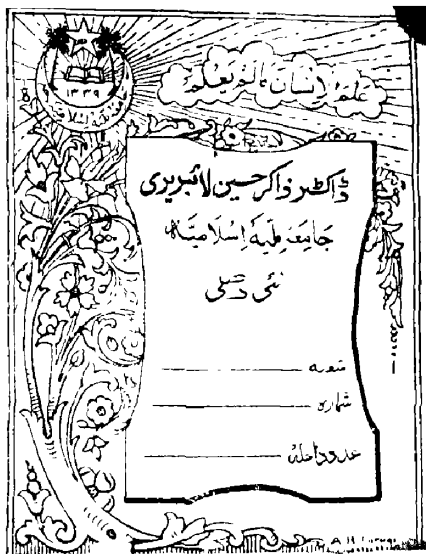 علم الإنسان مالم يعلم
١٣٣٩
ڈاکٹر ذاکر حسین لائبریری
جامعہ ملیہ اسلامیہ
نئی دہلی
شعبہ
شمارہ
عدد داخلہ